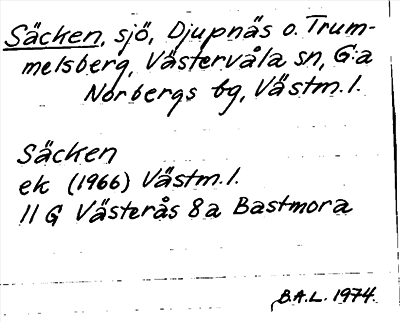 Säcken, sjö, Djupnäs o. Trum-
melsberg, Västervåla sn, G:a
Norbergs bg, Västm. l.
Säcken
ek (1966) Västm. l.
11 G Västerås 8a Bastmora
B.A.L. 1974